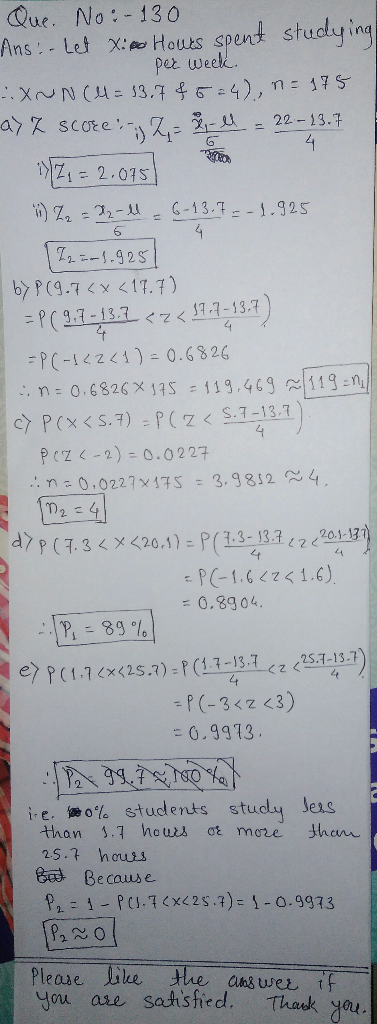 Que. No:- 130
Ans:- Let X: Hours spent studying
per week.
∴ X~N (μ = 13.7 & σ = 4), n = 175
a) Z score:- i) Z₁ = x₁-μ/σ = 22-13.7/4
i) Z₁ = 2.075
ii) Z₂ = x₂-μ/σ = 6-13.7/4 = -1.925
Z₂ = -1.925
b) P(9.7 < X < 17.7)
= P(9.7-13.7/4 < Z < 17.7-13.7/4)
= P(-1 < Z < 1) = 0.6826
∴ n = 0.6826 × 175 = 119.469 ≈ 119 = n₁
c) P(X < 5.7) = P(Z < 5.7-13.7/4)
P(Z < -2) = 0.0227
∴ n = 0.0227×175 = 3.9812 ≈ 4.
n₂ = 4
d) P(7.3 < X < 20.1) = P(7.3-13.7/4 < Z < 20.1-13.7/4)
= P(-1.6 < Z < 1.6).
= 0.8904.
∴ P₁ = 89%
e) P(1.7 < X < 25.7) = P(1.7-13.7/4 < Z < 25.7-13.7/4)
= P(-3 < Z < 3)
= 0.9973.
∴ P₂ = 99.7 ≈ 100%
i.e. 0% students study less
than 1.7 hours or more than
25.7 hours
But Because
P₂ = 1 - P(1.7 < X < 25.7) = 1 - 0.9973
P₂ ≈ 0
Please like the answer if
you are satisfied. Thank you.